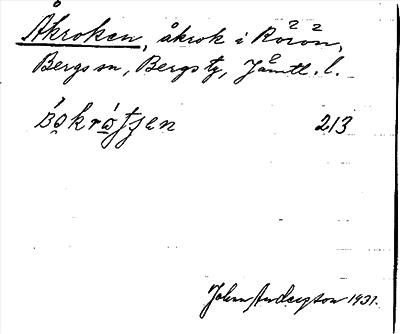 Åkroken, åkrok i Rörön,
Bergs sn, Bergs tg, Jämtl. l.
213
John Anderzson 1931.